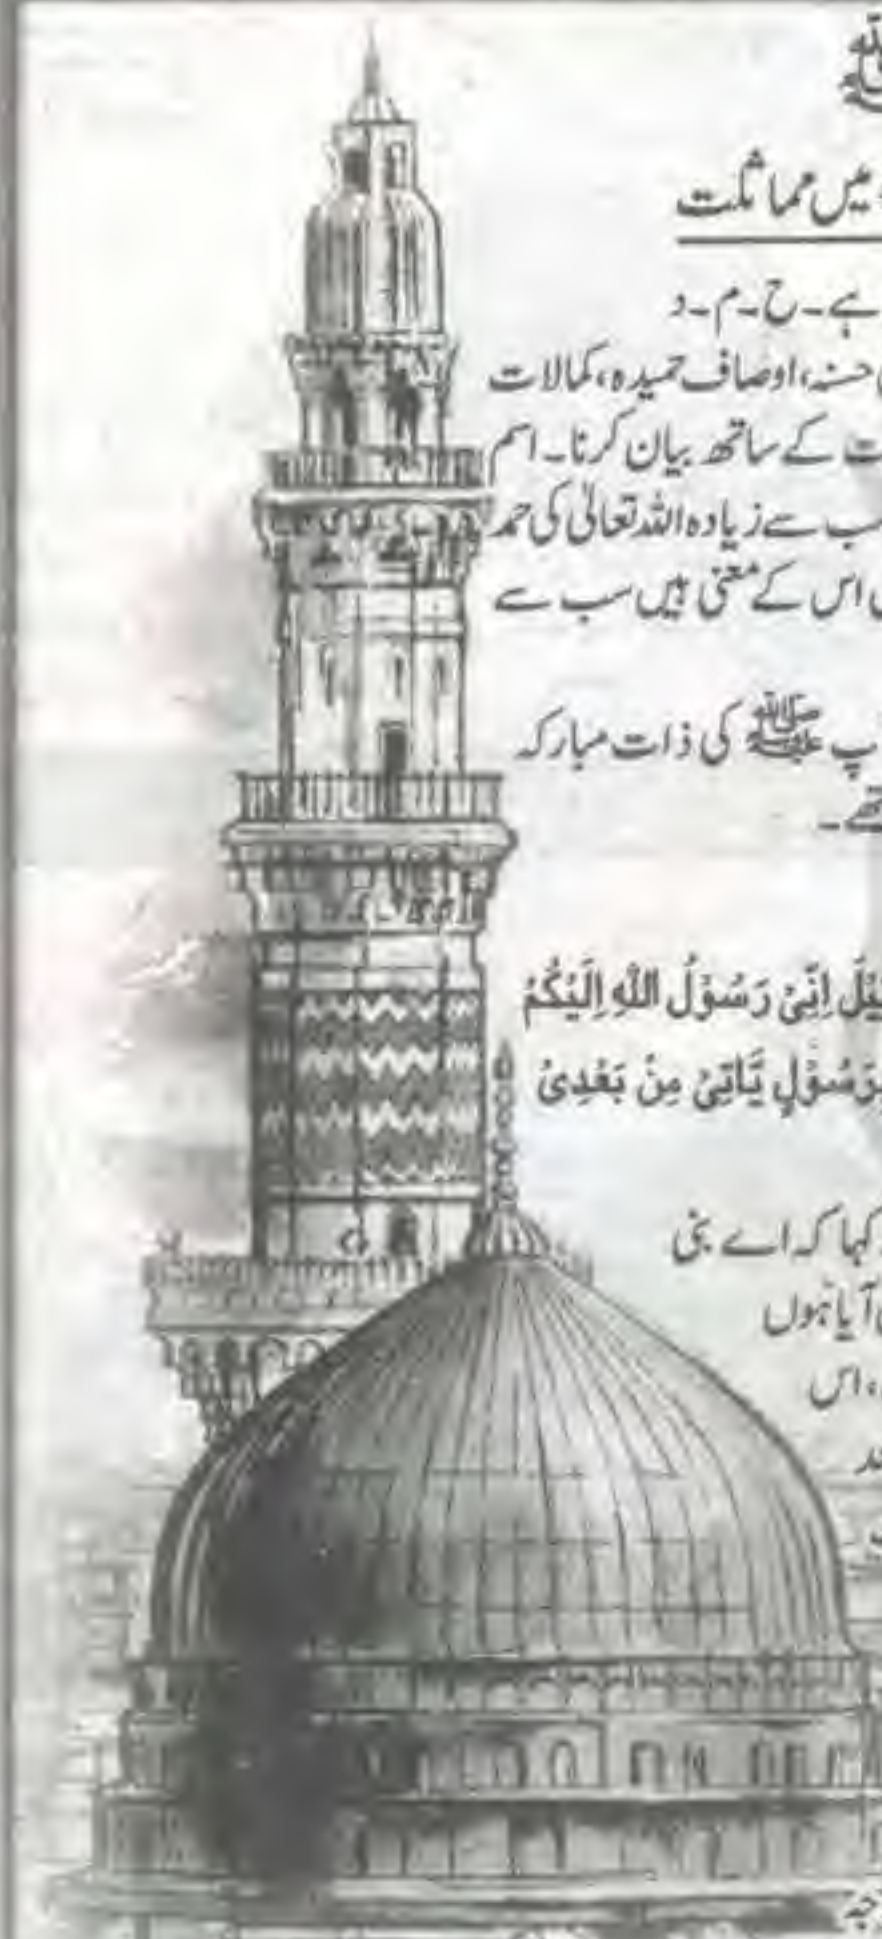 ﷺ
میں مماثلت
ہے۔ح۔م۔د
حسنہ،اوصاف حمیدہ،کمالات
کے ساتھ بیان کرنا۔اسم
سب سے زیادہ اللہ تعالیٰ کی حمد
اس کے معنی ہیں سب سے
آپ ﷺ کی ذات مبارکہ
تھے۔
اِنِّیۡ رَسُوۡلُ اللّٰہِ اِلَیۡکُمۡ
بِرَسُوۡلٍ یَّاۡتِیۡ مِنۡۢ بَعۡدِی
کہا کہ اے بنی
آیا ہوں
،اس